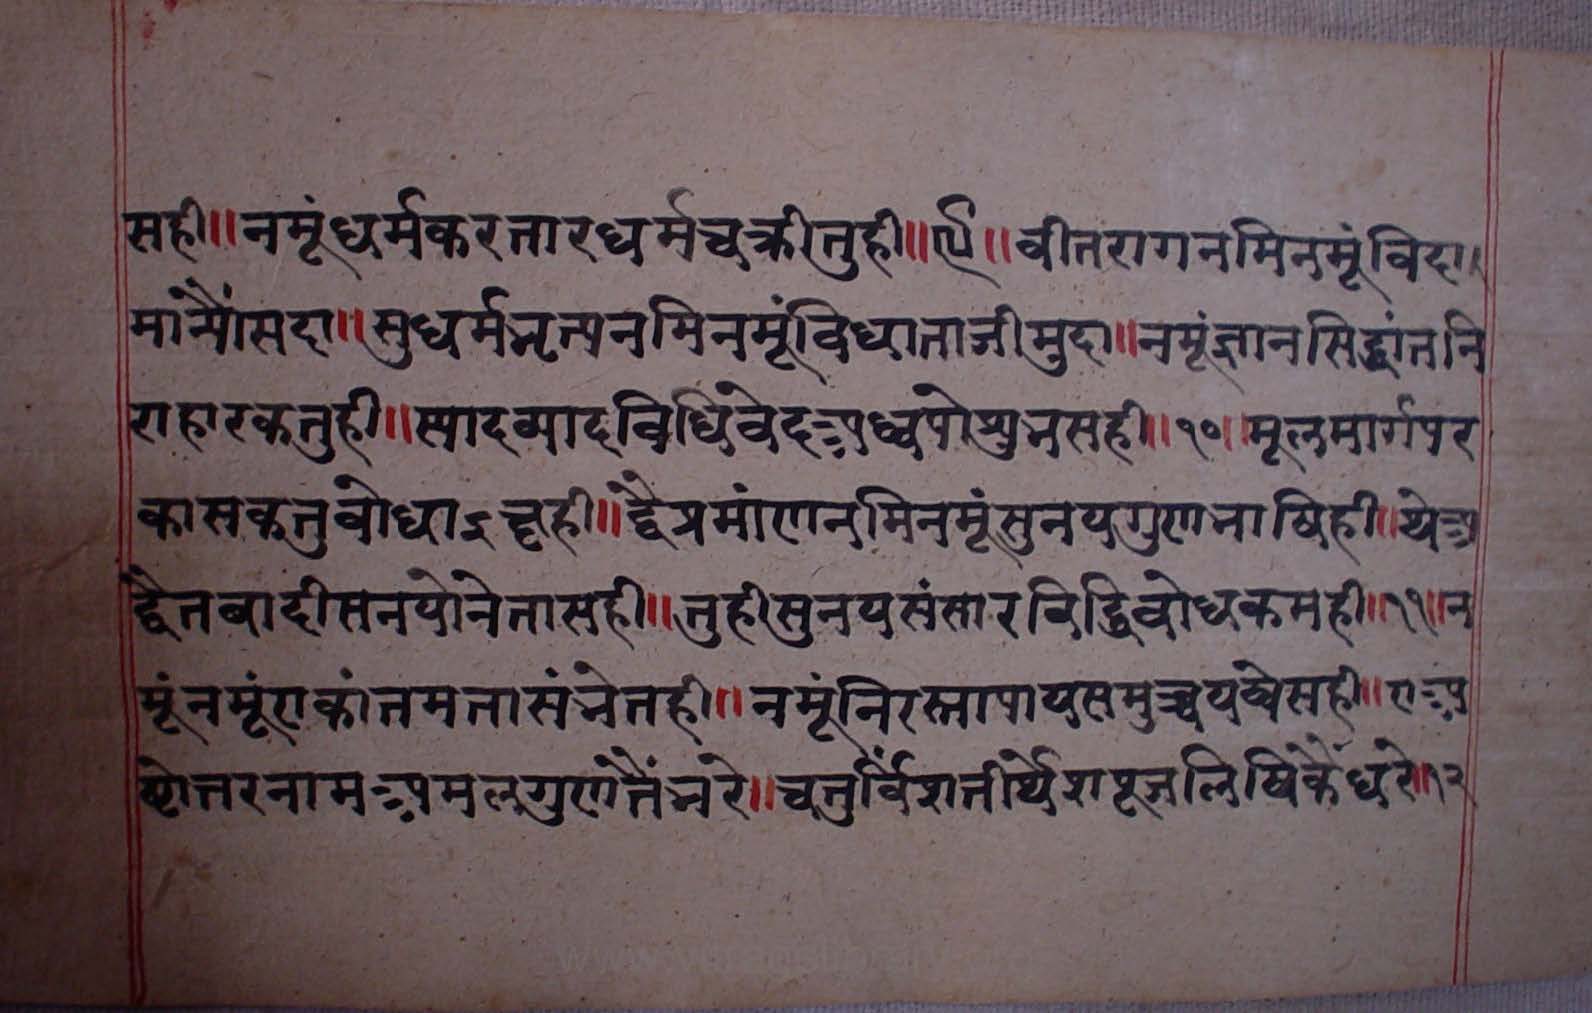 सही॥नमूंधर्मकरतारधर्मचक्रीतुही॥९॥वीतरागनमिनमूंविदा।
मान्यौंसदा॥सुधर्मनृत्यनमिनमूंविधाताजीमुदा॥नमूंज्ञानसिद्धांतनि
राहारकतुही॥स्यादव्यादविधिवेदअध्वपो सही॥१०॥मूलमार्गपर
कासकतुवोधाऽ ही॥द्वैप्रमांणनमिनमूंसुनयगुणनाषिही॥थेअ
द्वैतवादीसनयोनेतासही॥तुहीसुनयसंसारविद्धिवोधकमही॥११॥न
मूंनमूंएकांतमतासंनेतही॥नमूंनिरस्तापायसमुच्चय सही॥एअ
ष्टोत्तरनामअमलगुणतैंनरे॥चतुर्विंशतीर्थेशपूजलिषिकैंधरे॥१२